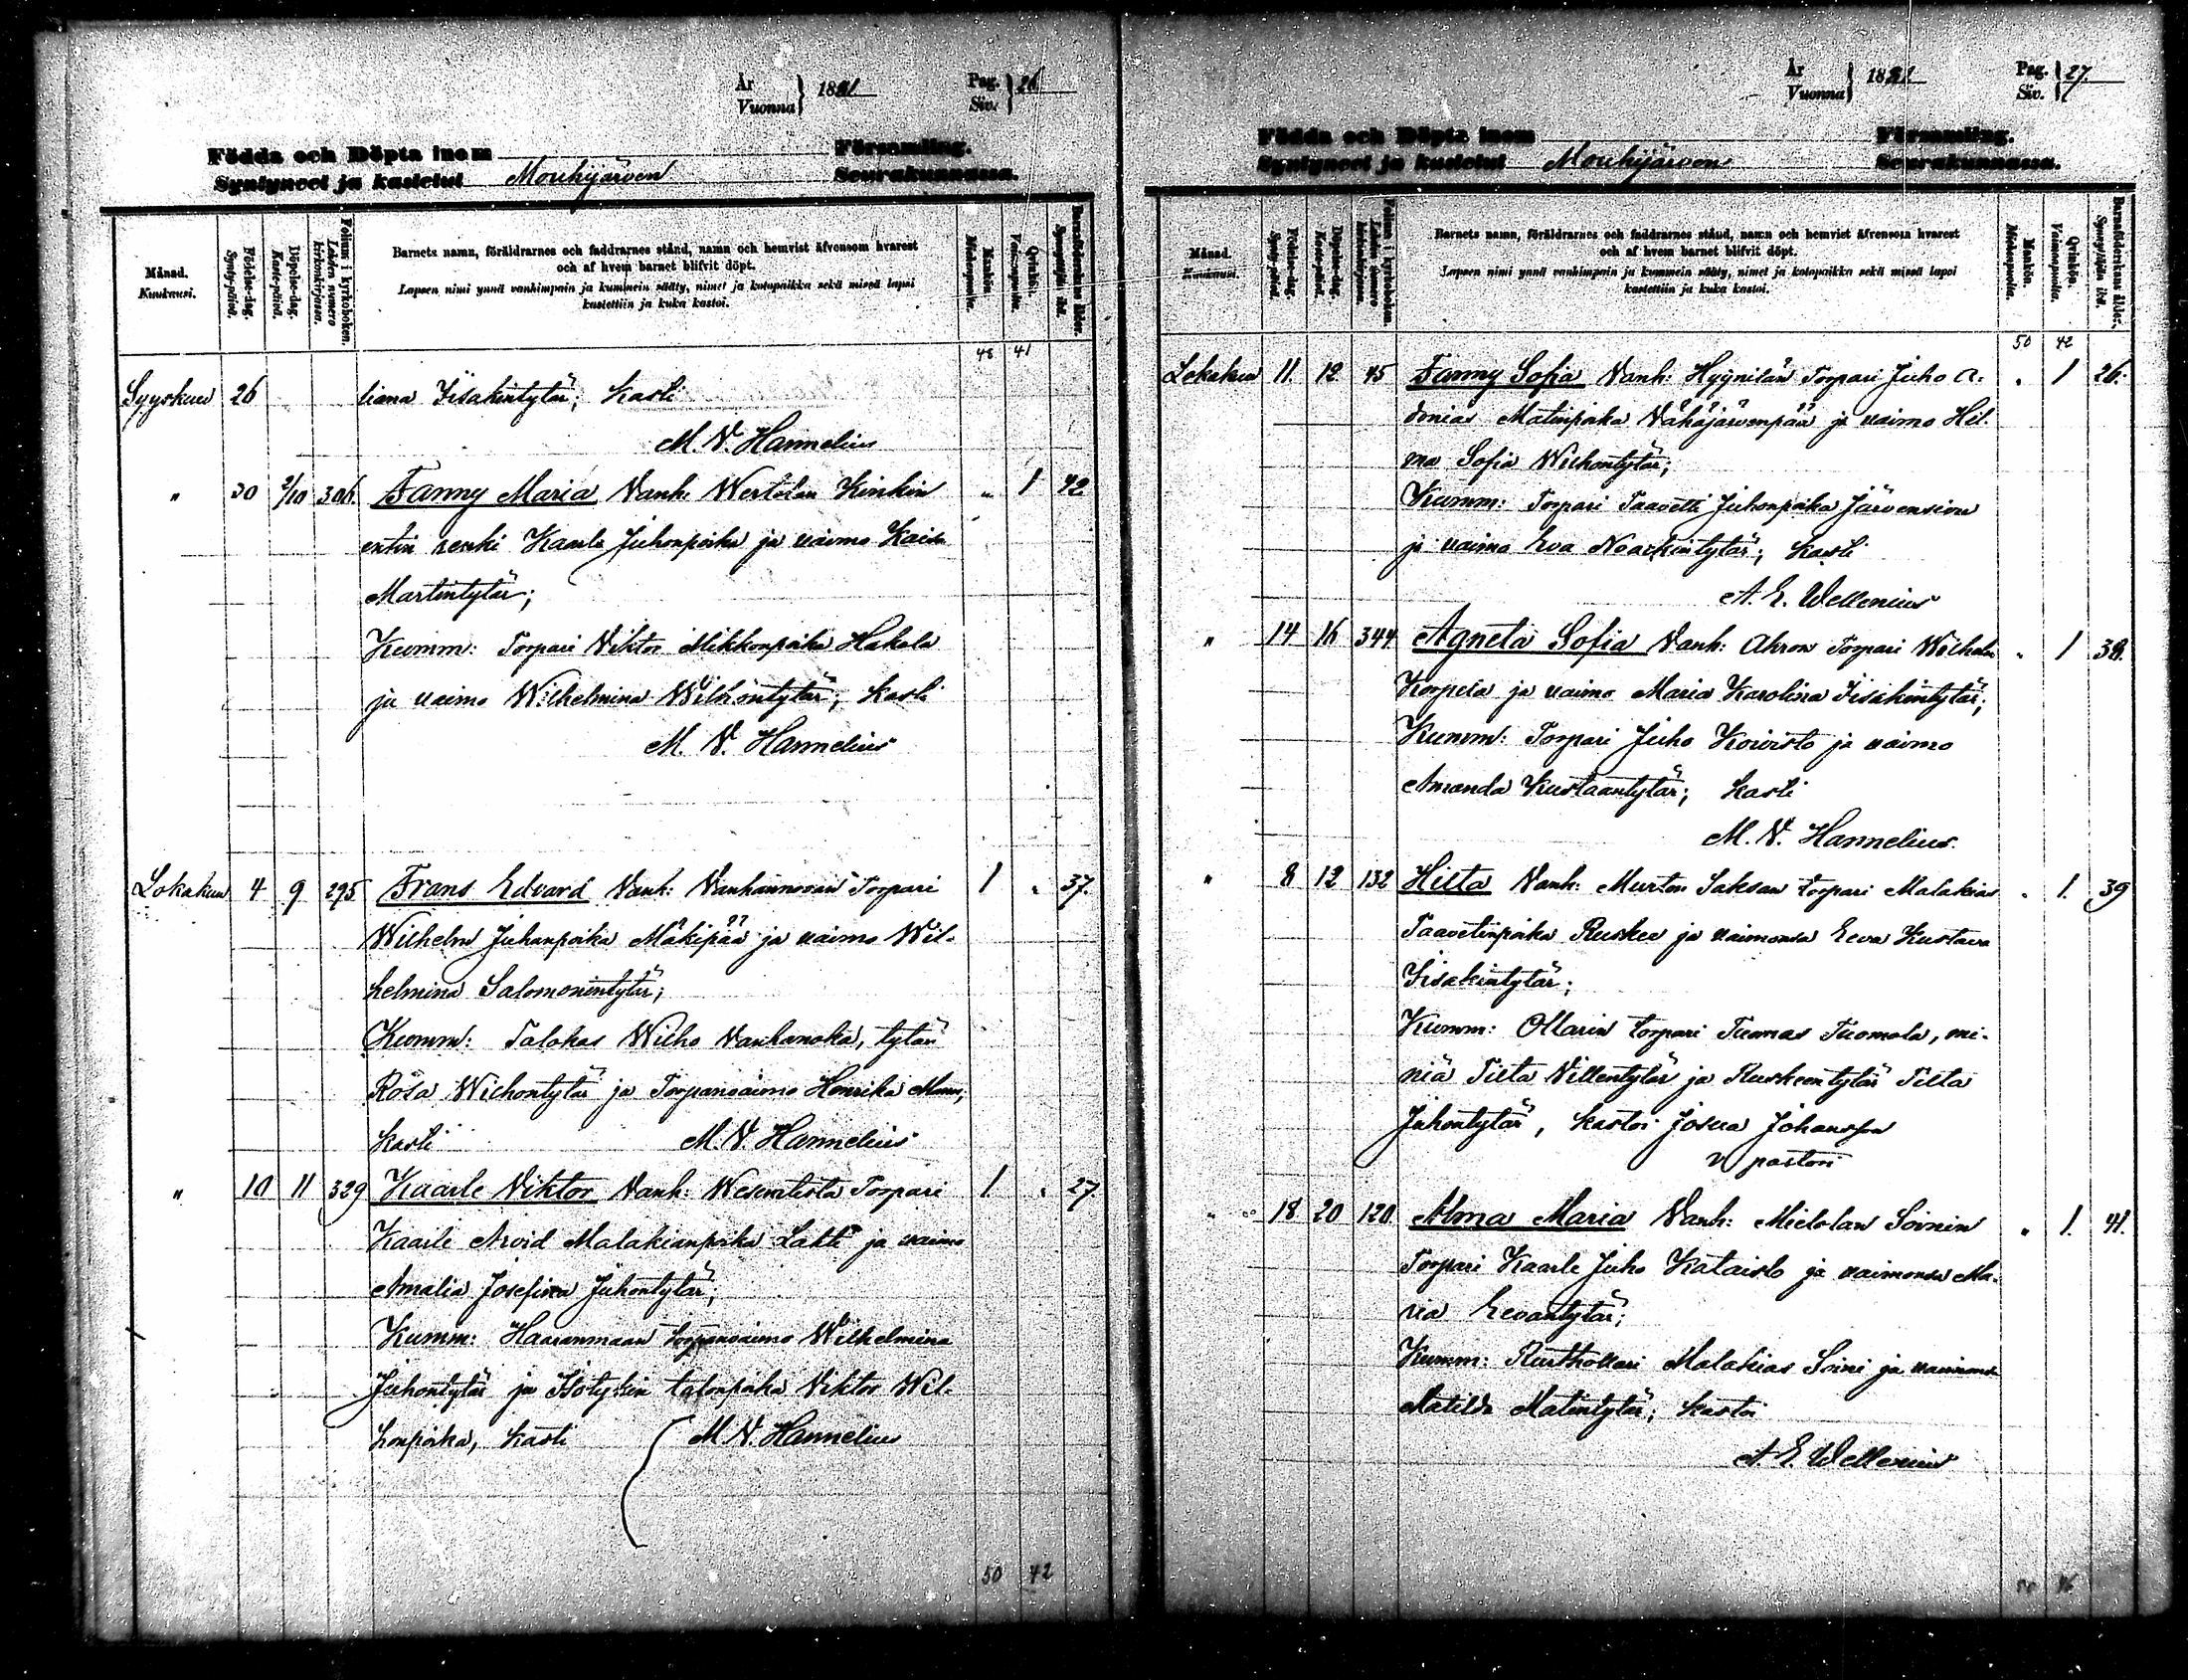 År
Vuonna } 1881
Pag.
Siv. } 26
Födda och Döpta inom Församling.
Syntyneet ja kastetut Mouhijärven Seurakunnassa.
Månad.
Kuukausi.
Födelse-dag.
Synty-päivä.
Döpelse-dag.
Kaste-päivä.
Folium i kyrkoboken.
Lehden numero kirkonkirjassa.
Barnets namn, föräldrarnes och faddrarnes stånd, namn och hemvist äfvensom hvarest
och af hvem barnet blifvit döpt.
Lapsen nimi ynnä vanhimpain ja kummein sääty, nimet ja kotopaikka sekä missä lapsi
kastettiin ja kuka kastoi.
Mankön.
Miehenpuolia.
Qvinkön.
Vaimonpuolia.
Barnaföderskans ålder.
Synnyttäjän ikä.
48 41
Syyskuu 26 liana Iisakintytär; Kasti
M. V. Hannelius
" 30 2/10 306. Fanny Maria Vanh: Kinkin " 1 42
entin renki Kaarle Juhonpoika ja vaimo Kaisa
Martintytär;
Kumm: Torpari Viktor Mikkonpoika Hakala
ja vaimo Wilhelmina Wilhontytär; Kasti
M. V. Hannelius
Lokakuu 4 9 295 Frans Edvard Vanh: Torpari 1 " 37.
Wilhelm Juhanpoika Mäkipää ja vaimo Wil-
helmina Salomonintytär;
Kumm: Talokas Wilho Vanhanoka, tytär
Rosa Wilhontytär ja Torpanvaimo Henrika
Kasti M. V. Hannelius
" 10 11 329 Kaarle Viktor Vanh: Torpari 1 " 27.
Kaarle Arvid Malakianpoika Lahti ja vaimo
Amalia Josefina Juhontytär;
Kumm: Haaranmaan torpanvaimo Wilhelmina
Juhontytär ja talonpoika Viktor Wil-
honpoika, Kasti M. V. Hannelius
50 42
År
Vuonna } 1881
Pag.
Siv. } 27
Födda och Döpta inom Församling.
Syntyneet ja kastetut Mouhijärven Seurakunnassa.
Månad.
Kuukausi.
Födelse-dag.
Synty-päivä.
Döpelse-dag.
Kaste-päivä.
Folium i kyrkoboken.
Lehden numero kirkonkirjassa.
Barnets namn, föräldrarnes och faddrarnes stånd, namn och hemvist äfvensom hvarest
och af hvem barnet blifvit döpt.
Lapsen nimi ynnä vanhimpain ja kummein sääty, nimet ja kotopaikka sekä missä lapsi
kastettiin ja kuka kastoi.
Mankön.
Miehenpuolia.
Qvinkön.
Vaimonpuolia.
Barnaföderskans ålder.
Synnyttäjän ikä.
50 42
Lokakuu 11. 12 45 Fanny Sofia Vanh: Hyynilän Torpari Juho A- " 1 26.
donias Matinpoika Vähäjärvenpää ja vaimo Hil-
ma Sofia Wilhontytär;
Kumm: Torpari Taavetti Juhonpoika Järvensivu
ja vaimo Eva Noackintytär; Kasti
A. E. Wellenius
" 14 16 344 Agneta Sofia Vanh: Ahron Torpari Wilhelm " 1 38.
Korpela ja vaimo Maria Karolina Iisakintytär;
Kumm: Torpari Juho Koivisto ja vaimo
Amanda Kustaantytär; Kasti
M. V. Hannelius.
" 8 12 132 Hilta Vanh: Murton Saksan torpari Malakias " 1. 39
Taavetinpoika Ruskee ja vaimonsa Eeva Kustava
Iisakintytär;
Kumm: Ollarin torpari Tuomas Tuomola, mi-
niä Tilta Villentytär ja Ruskeentytär Tilta
Juhontytär, Kastoi Josua Johansson
v pastori
" 18 20 120 Alma Maria Vanh: Mielolan Soinin " 1. 41.
Torpari Kaarle Juho Kataisto ja vaimonsa Ma-
ria Eevantytär;
Kumm: Rusthollari Malakias Soini ja vaimonsa
Matilda Matintytär; Kastoi
A. E. Wellenius
50 46